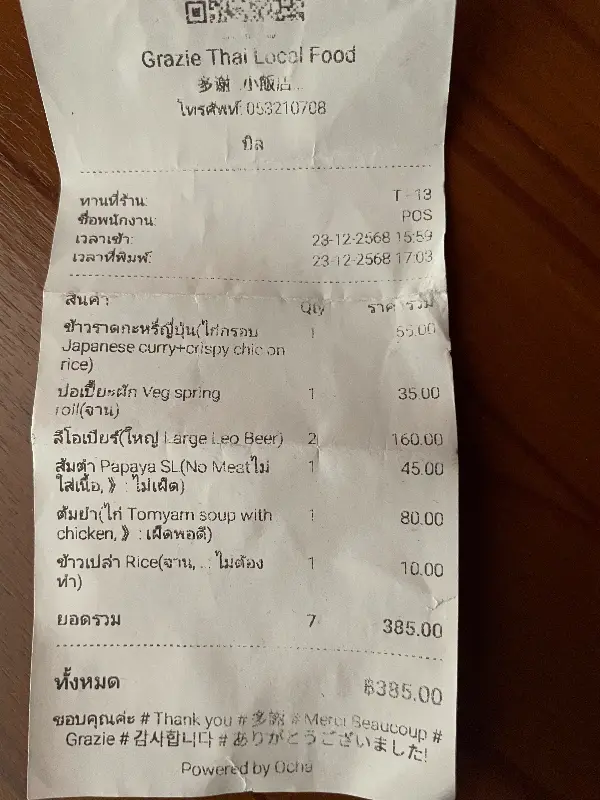 Grazie Thai Local Food
多謝 小飯店
โทรศัพท์: 053210708
บิล
ทานที่ร้าน: T - 13
ชื่อพนักงาน: POS
เวลาเข้า: 23-12-2568 15:59
เวลาที่พิมพ์: 23-12-2568 17:03
สินค้า Qty ราคารวม
ข้าวราดกะหรี่ญี่ปุ่น(ไก่กรอบ 1 55.00
Japanese curry+crispy chic on
rice)
ปอเปี๊ยะผัก Veg spring 1 35.00
roll(จาน)
ลีโอเบียร์(ใหญ่ Large Leo Beer) 2 160.00
ส้มตำ Papaya SL(No Meatไม่ 1 45.00
ใส่เนื้อ, 》 : ไม่เผ็ด)
ต้มยำ(ไก่ Tomyam soup with 1 80.00
chicken, 》 : เผ็ดพอดี)
ข้าวเปล่า Rice(จาน, ..: ไม่ต้อง 1 10.00
ทำ)
ยอดรวม 7 385.00
ทั้งหมด ฿385.00
ขอบคุณค่ะ # Thank you # 多謝 # Merci Beaucoup #
Grazie # 감사합니다 # ありがとうございました!
Powered by Ocha